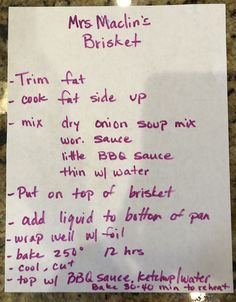 Mrs. Maclin's
Brisket
- Trim fat
- cook fat side up
- mix dry onion soup mix
wor. sauce
little BBQ sauce
thin w/ water
- Put on top of brisket
- add liquid to bottom of pan
- wrap well w/ foil
- bake 250° 12 hrs
- cool, cut
- top w/ BBQ sauce, ketchup/water
Bake 30-40 min to reheat